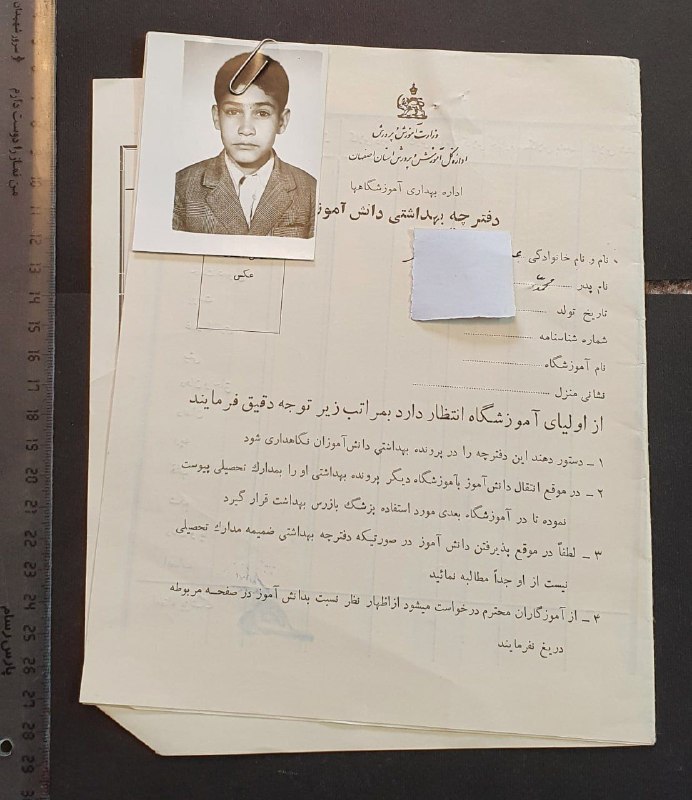 وزارت آموزش و پرورش
اداره کل آموزش و پرورش استان اصفهان
اداره بهداری آموزشگاهها
دفترچه بهداشتی دانش آموز
نام و نام خانوادگی
نام پدر
تاریخ تولد
شماره شناسنامه
نام آموزشگاه
نشانی منزل
عکس
از اولیای آموزشگاه انتظار دارد بمراتب زیر توجه دقیق فرمایند
۱ – دستور دهند این دفترچه را در پرونده بهداشتی دانش‌آموزان نگاهداری شود
۲ – در موقع انتقال دانش‌آموز بآموزشگاه دیگر پرونده بهداشتی او را بمدارك تحصیلی پیوست
نموده تا در آموزشگاه بعدی مورد استفاده پزشگ بازرس بهداشت قرار گیرد
۳ – لطفاً در موقع پذیرفتن دانش آموز در صورتیکه دفترچه بهداشتی ضمیمه مدارك تحصیلی
نیست از او جداً مطالبه نمائید
۴ – از آموزگاران محترم درخواست میشود ازاظهار نظر نسبت بدانش آموز در صفحه مربوطه
دریغ نفرمایند
سرور شهیدان
من نماز را دوست دارم
پارس رسام
10
11
12
13
14
15
16
17
18
19
20
21
22
23
24
25
26
27
28
29